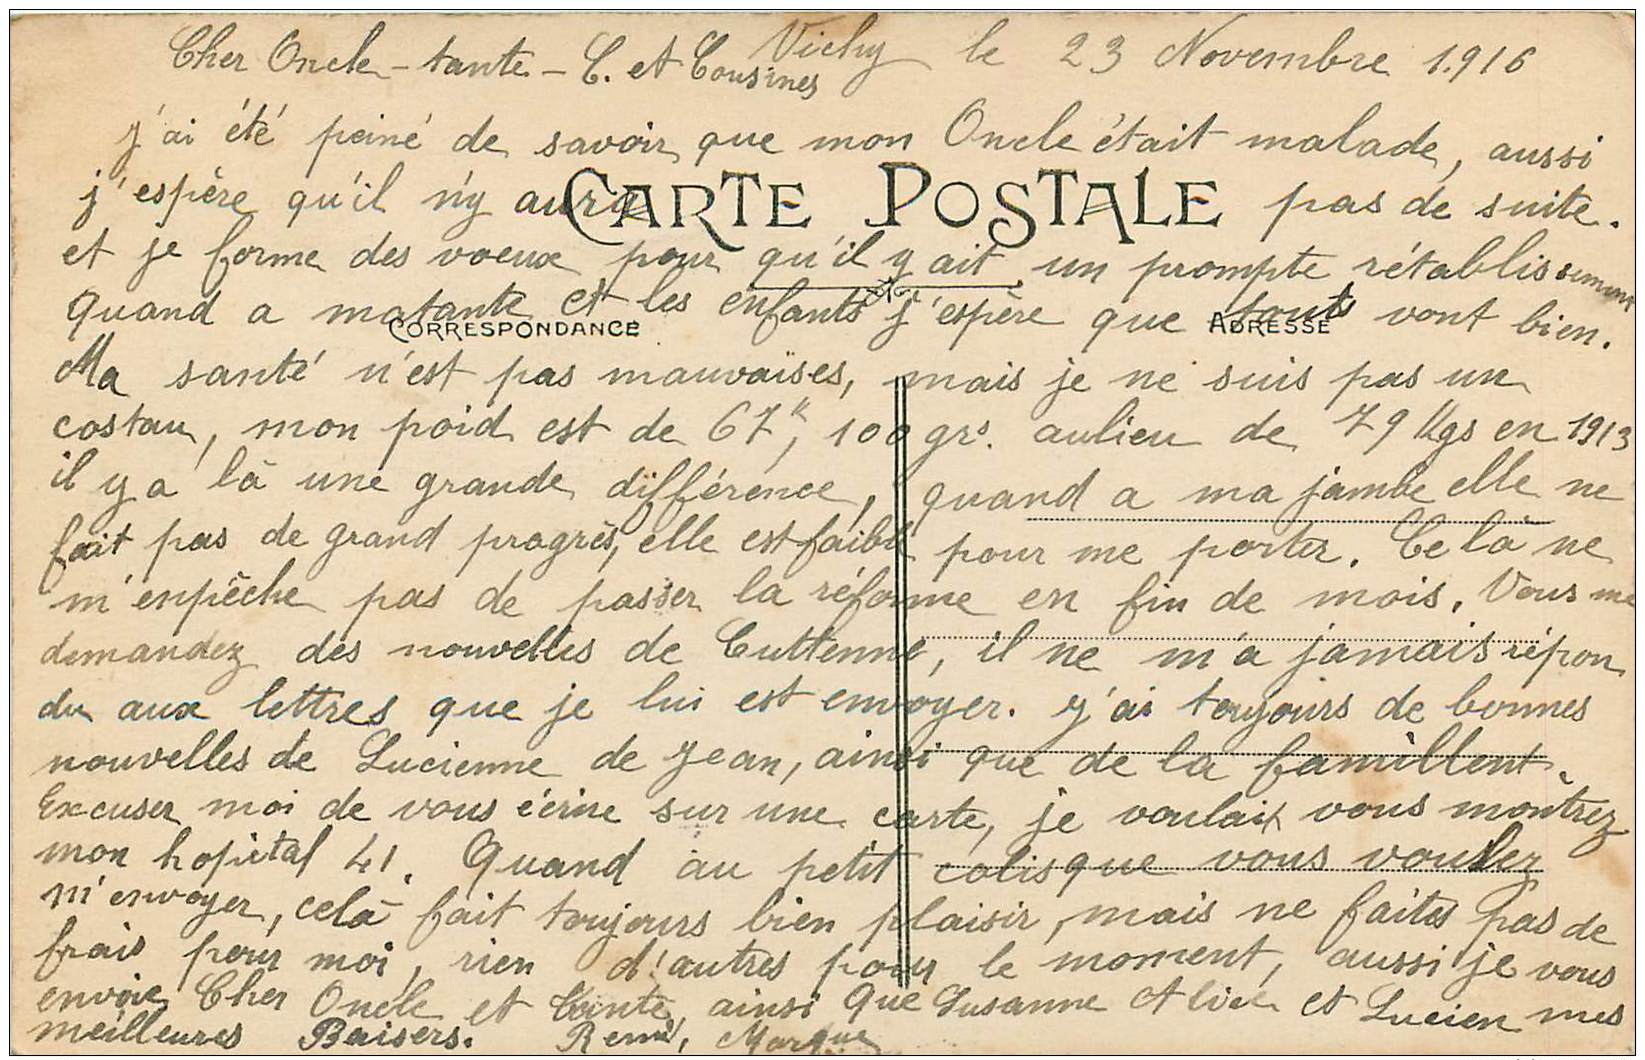 Vichy le 23 Novembre 1.916
Cher Oncle - tante - C. et Cousines
j'ai été peiné de savoir que mon Oncle était malade, aussi
j'espère qu'il n'y aura pas de suite.
CARTE POSTALE
et je forme des voeux pour qu'il y ait un prompte rétablissement
quand a matante et les enfants j'espère que touts vont bien.
CORRESPONDANCE ADRESSE
Ma santé n'est pas mauvaises, mais je ne suis pas un
costau, mon poid est de 67k, 100 grs. aulieu de 79 Kgs en 1913
il y a là une grande différence, quand a ma jambe elle ne
fait pas de grand progrès, elle est faible pour me porter. Celà ne
m'enpêche pas de passer la réforme en fin de mois. Vous me
demandez des nouvelles de Cuttenne, il ne m'a jamais répon
du aux lettres que je lui est envoyer. j'ai toujours de bonnes
nouvelles de Lucienne de Jean, ainsi que de la famillent.
Excuser moi de vous écrire sur une carte, je voulait vous montrez
mon hopital 41. Quand au petit colis que vous voulez
m'envoyer, celà fait toujours bien plaisir, mais ne faites pas de
frais pour moi, rien d'autres pour le moment, aussi je vous
envoie Cher Oncle et tante, ainsi que Susanne Alice et Lucien mes
meilleures Baisers. Remi, Marque